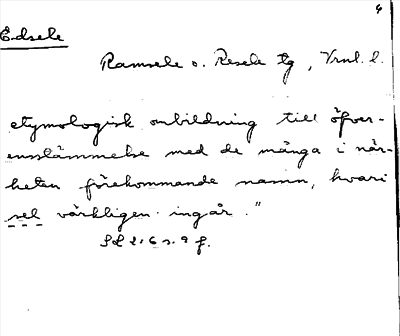 6
Edsele
Ramsele o. Resele tg, Vrnl. l.
etymologisk ombildning till öfver-
ensstämmelse med de många i när-
heten förekommande namn, hvari
sel värkligen ingår."
SL 2:6 s. 9 f.